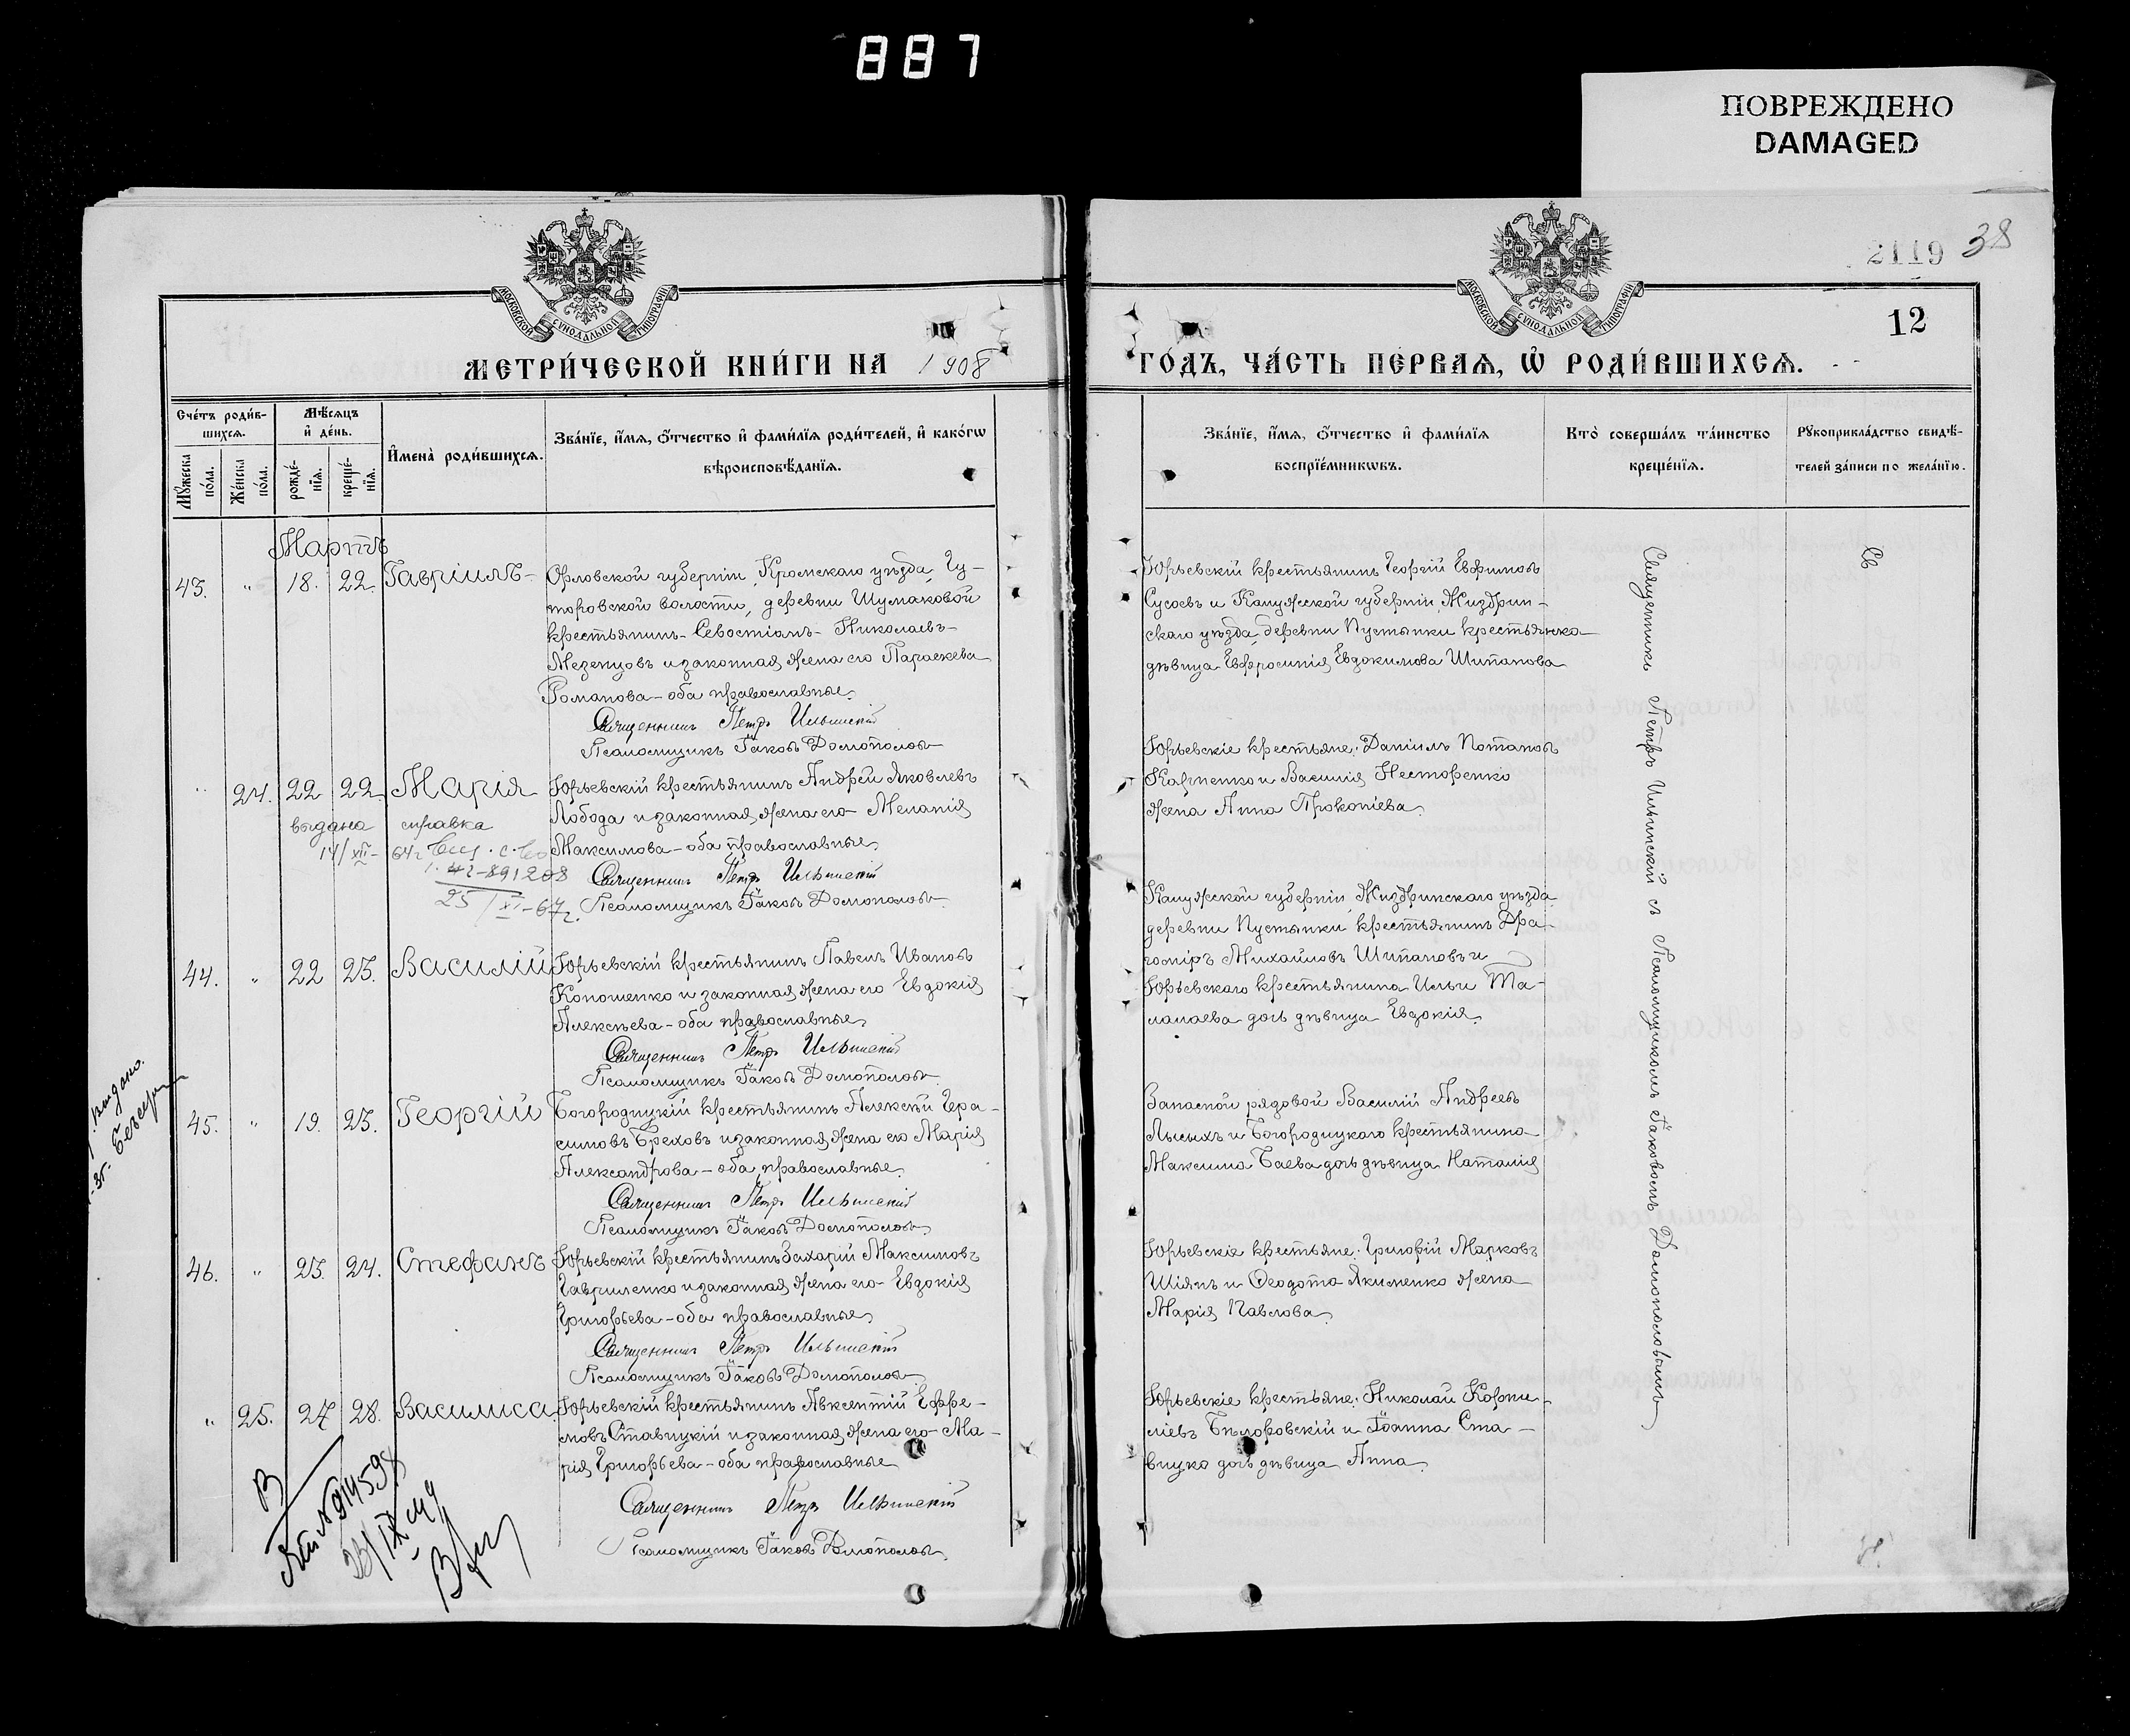 887
ПОВРЕЖДЕНО
DAMAGED
2119 38
МОСКОВСКОЙ СУНОДАЛЬНОЙ ТИПОГРАФІИ
МОСКОВСКОЙ СУНОДАЛЬНОЙ ТИПОГРАФІИ
12
МЕТРИ́ЧЕСКОЙ КНИ́ГИ НА 1908
ГО́ДЪ, ЧА́СТЬ ПЕ́РВАѦ, Ѽ РОДИ́ВШИХСѦ.
Сче́тъ роди́в-
шихсѧ.
Мѣ́сѧцъ
и҆ де́нь.
Мꙋ́жеска
по́ла.
Же́нска
по́ла.
рожде́-
нїѧ.
креще́-
нїѧ.
И҆мена̀ роди́вшихсѧ.
Зва́нїе, и҆́мѧ, ѻ҆́тчество и҆ фами́лїѧ роди́телей, и҆ како́гѡ
вѣроисповѣ́данїѧ.
Зва́нїе, и҆́мѧ, ѻ҆́тчество и҆ фами́лїѧ
воспрїе́мникѡвъ.
Кто̀ соверша́лъ та́инство
креще́нїѧ.
Рꙋкоприкла́дство свидѣ́-
телей за́писи по жела́нїю.
Мартъ
43. " 18. 22. Гавріилъ-
Орловской губерніи, Кромскаго уѣзда, Гу-
торовской волости, деревни Шумаковой
крестьянинъ- Севостіанъ- Николаевъ-
Мезенцовъ и законная жена его Параскева
Романова - оба православные.
Священникъ Петръ Ильинскій
Псаломщикъ Іаковъ Домополовъ
Юрьевскій крестьянинъ Георгій Евфимовъ
Сусоевъ и Калужской губерніи, Жиздрин-
скаго уѣзда, деревни Пустынки крестьянка
дѣвица Евфросинія Евдокимова Шипанова
" 24. 22 22. Марія
выдана справка
14/XII-64г
25/XI-67г.
Юрьевскій крестьянинъ Андрей Яковлевъ
Лобода и законная жена его- Меланія
Максимова - оба православные.
Священникъ Петръ Ильинскій
Псаломщикъ Іаковъ Домополовъ
Юрьевскіе крестьяне: Даніилъ Потаповъ
Карпенко и Василія Нестеренко
жена Анна Прокопіева.
44. " 22 23. Василій
Юрьевскій крестьянинъ Павелъ Ивановъ
Кононенко и законная жена его Евдокія
Алексѣева - оба православные.
Священникъ Петръ Ильинскій
Псаломщикъ Іаковъ Домополовъ
Калужской губерніи, Жиздринскаго уѣзда
деревни Пустынки крестьянинъ Дра-
гоміръ Михайловъ Шипановъ и
Юрьевскаго крестьянина Ильи Та-
лалаева дочь дѣвица Евдокія.
Выдано.
45. " 19. 23. Георгій
Богородицкій крестьянинъ Алексѣй Гера-
симовъ Бреховъ и законная жена его Марія
Александрова - оба православные.
Священникъ Петръ Ильинскій
Псаломщикъ Іаковъ Домополовъ
Запасной рядовой Василій Андреевъ
Лысыхъ и Богородицкого крестьянина
Максима Баева дочь дѣвица Наталія
46. " 23. 24. Стефанъ
Юрьевскій крестьянинъ Захарій Максимовъ
Гавриленко и законная жена его- Евдокія
Григорьева - оба православные.
Священникъ Петръ Ильинскій
Псаломщикъ Іаковъ Домополовъ
Юрьевскіе крестьяне: Григорій Марковъ
Шіянъ и Ѳеодота Якименко жена
Марія Павлова.
" 25. 27 28. Василиса
Юрьевскій крестьянинъ Авксентій Ефре-
мовъ Ставицкій и законная жена его- Ма-
рія Григорьева - оба православные
Священникъ Петръ Ильинскій
Псаломщикъ Іаковъ Домополовъ
Юрьевскіе крестьяне: Николай Корни-
ліевъ Бѣлоровскій и Іоанна Ста-
вицка дочь дѣвица Анна.
Священникъ Петръ Ильинскій съ Псаломщикомъ Іаковомъ Домополовымъ